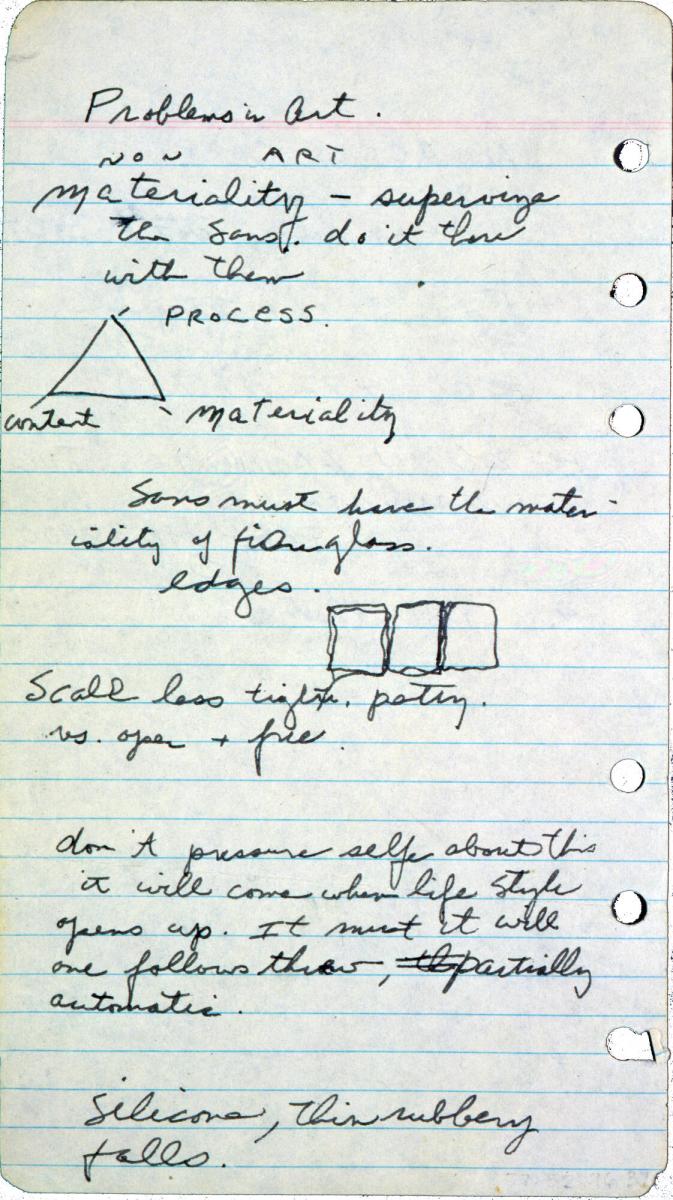 Problems in Art.
NON ART
materiality – supervize
the Sans. do it there
with them
PROCESS.
content
materiality
Sans must have the mater-
iality of fibreglass.
edges.
Scale less tight.
vs. open + free
don't pressure self about this
it will come when life style
opens up. It must it will
one follows thraw, partially
automatic.
Silicone, thin rubbery
falls.